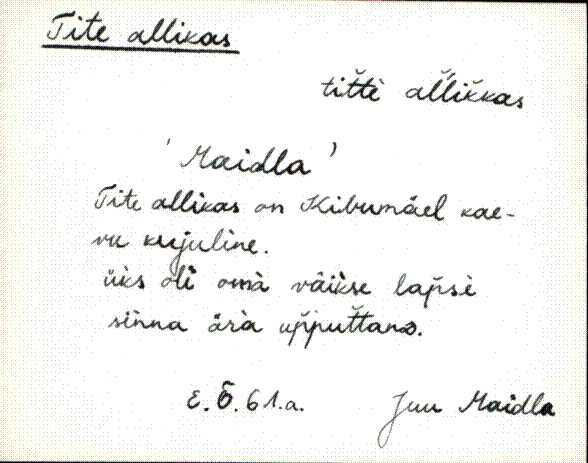 Tite allikas
tit̆tè al̆lik̆kas
' Maidla '
Tite allikas on Kibumäel kae-
vu kujuline.
üks oli omà väikse lap̆sè
sinna ärà up̆put̆tano.
E. Õ. 61.a. Juu Maidla